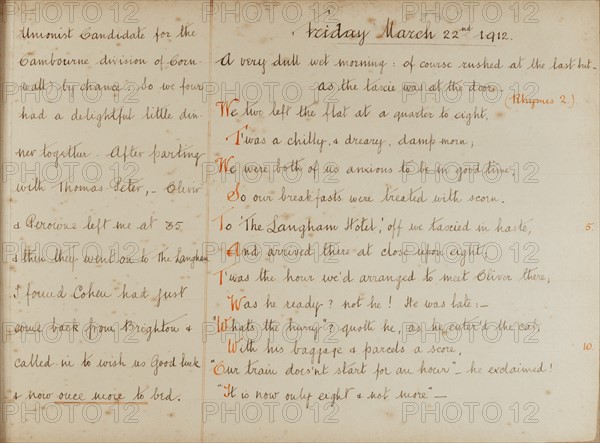 Unionist Candidate for the
Cambourne division of Corn-
wall) by chance. So we four
had a delightful little din-
ner together. After parting
with Thomas Peter, – Oliver
& Perowne left me at 35
& then they went on to the Langham
I found Cohen had just
come back from Brighton &
called in to wish us Good luck
& now once more to bed.
Friday March 22nd 1912.
A very dull wet morning: of course rushed at the last but-
as the taxie was at the door –
(Rhymes 2.)
We two left the flat at a quarter to eight,
T'was a chilly, & dreary, damp morn;
We were both of us anxious to be in good time,
So our breakfasts were treated with scorn.
To 'The Langham Hotel', off we taxied in haste, 5.
And arrived there at close upon eight;
T'was the hour we'd arranged to meet Oliver there;
Was he ready? not he! He was late: –
"Whats the hurry"? quoth he, as he enter'd the cab,
With his baggage & parcels a score, 10.
"Our train does'nt start for an hour" – he exclaimed!
"It is now only eight & not more" –
PHOTO 12